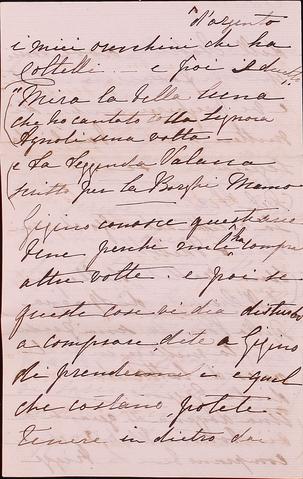 d'argento
i miei orecchini che ha
Coltelli — e poi i duetti
"Mira la bella luna
che ho cantato alla Signora
Agnoli una volta —
e La Leggenda Valacca
scritto per la Borghi Mamo
Gigino conosce queste cose
bene perchè me le ha compre
altre volte. e poi se
queste cose vi dia disturbo
a comprare, dite a Gigino
di prendere e quel
che costano, potete
tenere in dietro dai